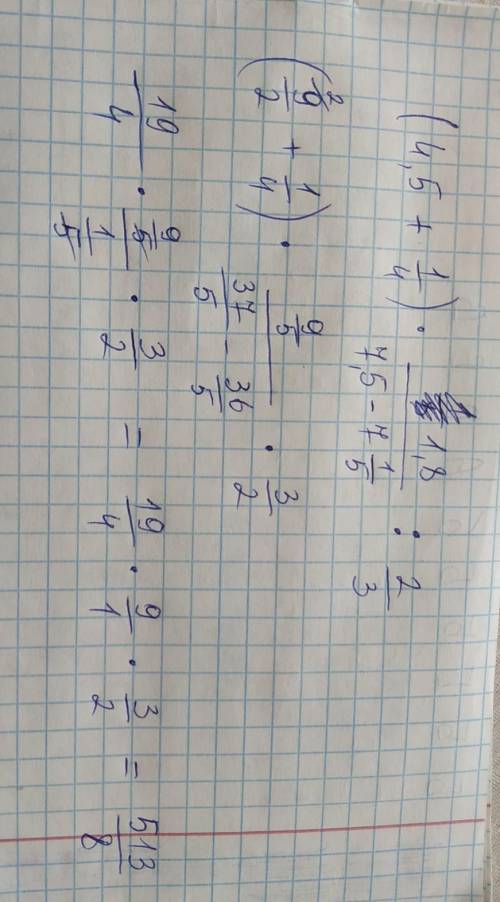 (4,5 + 1/4) · 1,8/(7,5 - 7 1/5) : 2/3
(9/2 + 1/4) · (9/5)/(37/5 - 36/5) · 3/2
19/4 · (9/5)/(1/5) · 3/2 = 19/4 · 9/1 · 3/2 = 513/8